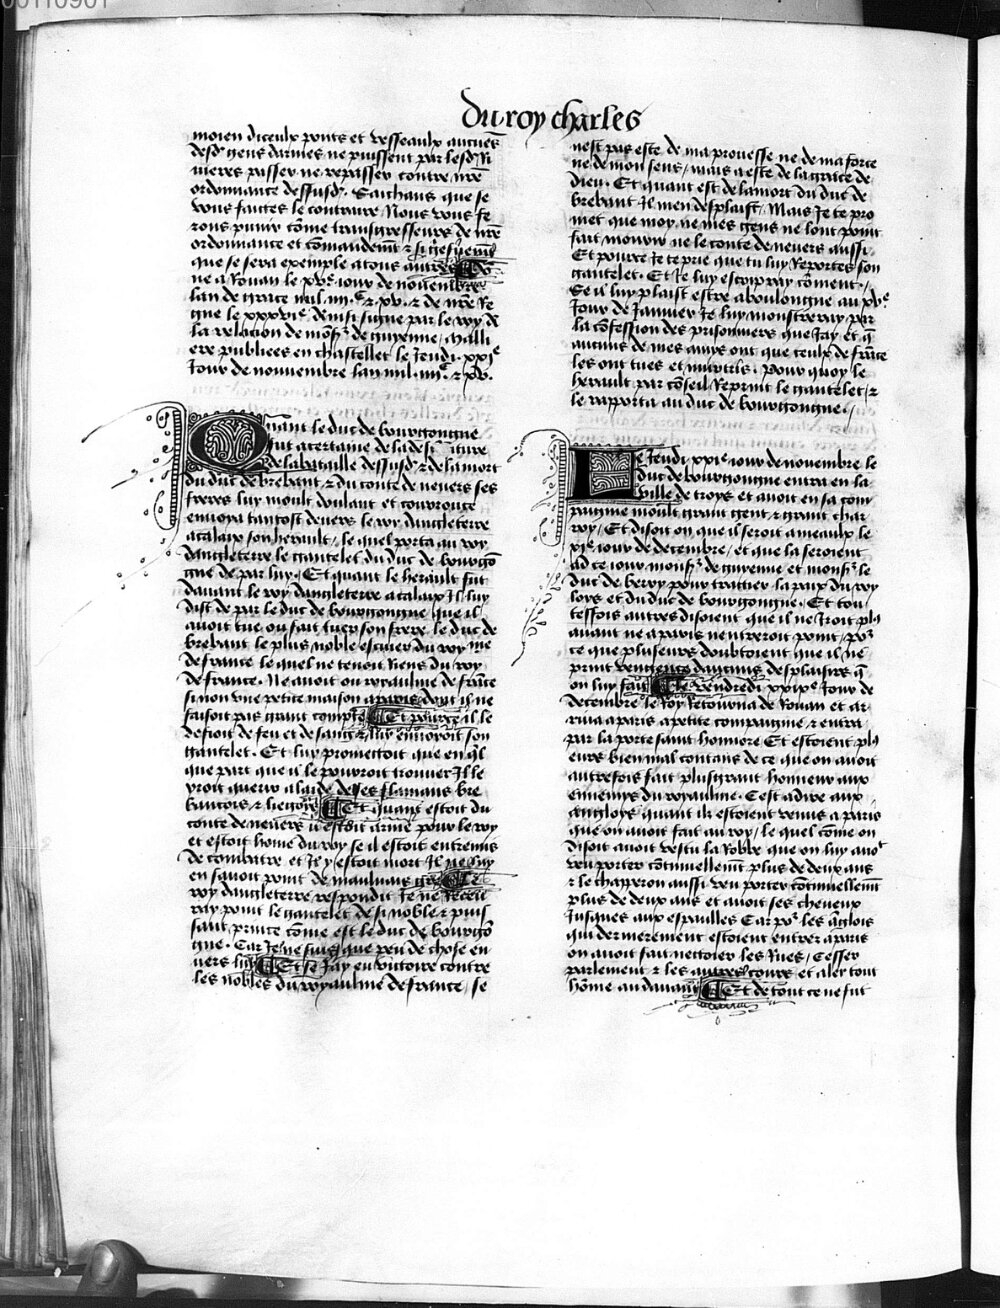 00110901
du roy charles
moien diceulx pons et vesseaulx aucunes
desd gens darmes ne puissent par lesd Ri
uieres passer ne rapasser contre nre
ordonnance dessusd. Saichans que se
vous faictes le contraire Nous vous fe
rons punir come transgresseurs de nre
ordonnance et commandemt
que se sera exemple a tous autres Do
ne a Rouan le xve iour de nouembre
lan de grace mil iiiic et xv et de nre Re
gne le xxxvie. Ainsi signe par le roy de
la relacion de monsr de guyenne Malli
ere publiees en chastellet le Jeudi xxie
Jour de nouembre lan mil iiiic et xv.
Quant le duc de bourgongne
fut acertaine de la
de la bataille dessusd et de la mort
du duc de brebant et du conte de neuers ses
freres luy moult doulant et couroucie
enuoya tantost deuers le roy dangleterre
a calaix son herault / le quel porta au roy
dangleterre le gantelet du duc de bourgo
gne de par luy. Et quant le herault fut
deuant le roy dangleterre a calaix Il luy
dist de par le duc de bourgongne que il
auoit tue ou fait tuer son frere le duc de
brebant le plus noble escuier du royme
de france le quel ne tenoit Riens du roy
de france. Ne auoit ou royaulme de france
si non vne petite maison a paris dont il ne
faisoit pas grant compte Et pource il le
defioit de feu et de sang et luy enuoyoit son
gantelet. Et luy promettoit que en ql
que part que il le pourroit trouuer Il le
yroit querir a laide de ses flamans bre
bancons et liegois Et quant estoit du
conte de neuers il estoit arme pour le roy
et estoit home du roy se il estoit entremis
de combatre et Il y estoit mort Il ne luy
en sauoit point de mauluais gre Le
roy dangleterre respondit Je ne Receu
ray point le gantelet de si noble et puis
sant prince come est le duc de bourgo
gne. Car Je ne suis que peu de chose en
uers luy Et se Jay eu victoire contre
les nobles du royaulme de france / se
nest pas este de ma prouesse ne de ma force
ne de mon sens / mais a este de la grace de
dieu. Et quant est de la mort du duc de
brebant Il men desplaist. Mais Je te pro
met que moy ne mes gens ne lont point
fait mourir ne le conte de neuers aussi.
Et pource Je te prie que tu luy Reportes son
gantelet. Et Je luy escripray coment /
Se il luy plaist estre a boulongne au xve
Jour de Januier Je luy monstreray par
la confession des prisonniers que Jay et q
aucuns de mes amys ont que ceulx de france
les ont tues et murtris. Pour quoy le
herault par conseil Reprint le gantelet et
le rapporta au duc de bourgongne /
Le Jeudi xxie iour de nouembre le
duc de bourgongne entra en la
ville de troyes et auoit en sa com
paignie moult grant gent et grant char
roy / Et disoit on que il seroit a meaulx le
xie iour de decembre / et que la seroient
ad ce iour monsr de guyenne et monsr le
duc de berry pour traittier la paix du roy
loys et du duc de bourgongne. Et tou
tesfois autres disoient que il ne Iroit pl9
auant ne a paris ne entreroit point / po2
ce que pluseurs doubtoient que il ne
print vengence daucuns desplaisirs q
on luy fait Le vendredi xxixe Jour de
decembre le Roy Retourna de Rouan et ar
riua a paris a petite compaignie et entra
par la porte saint honnore Et estoient pl9
eurs bien mal contans de ce que on auoit
autresfois fait plus grant honneur aux
ennemys du royaulme. Cest adire aux
anglois quant ilz estoient venus a paris
que on auoit fait au roy / le quel come on
disoit auoit vestu la Robbe que on luy auot
veu porter continuellemt plus de deux ans
et le chapperon aussi veu porter continuellemt
plus de deux ans et auoit ses cheueux
Jusques aux espaulles Car po2 les anglois
qui derrierement estoient entrez a paris
on auoit fait nettoier les Rues / Cesser
parlement et les autres cours et aler tout
home au deuant Et de tout ce ne fut